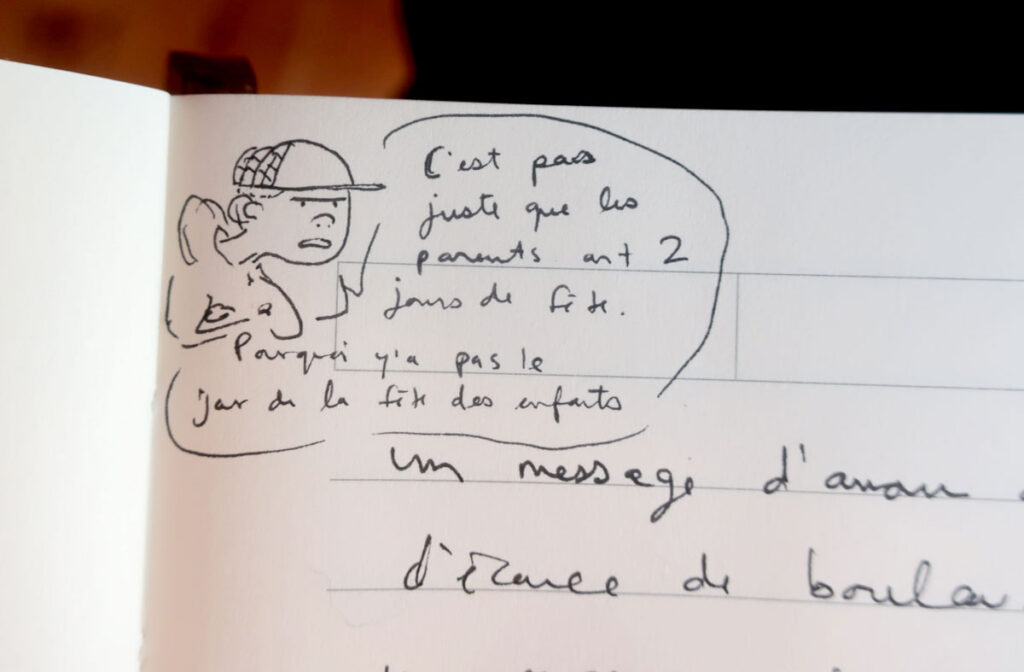 C'est pas
juste que les
parents ont 2
jours de fête.
Pourquoi y'a pas le
jour de la fête des enfants
un message d'amour
de